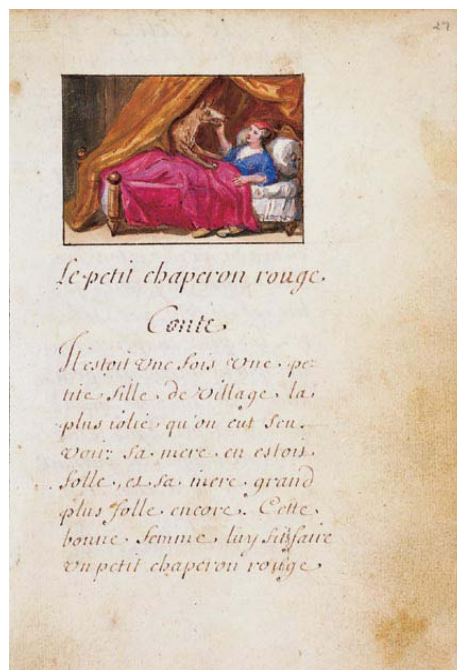 27
Le petit chaperon rouge.
Conte.
Il estoit vne fois vne pe-
tite fille de village la
plus iolie qu'on eut sceu
voir: sa mere en estoit
folle, et sa mere grand
plus folle encore. Cette
bonne femme luy fit faire
vn petit chaperon rouge